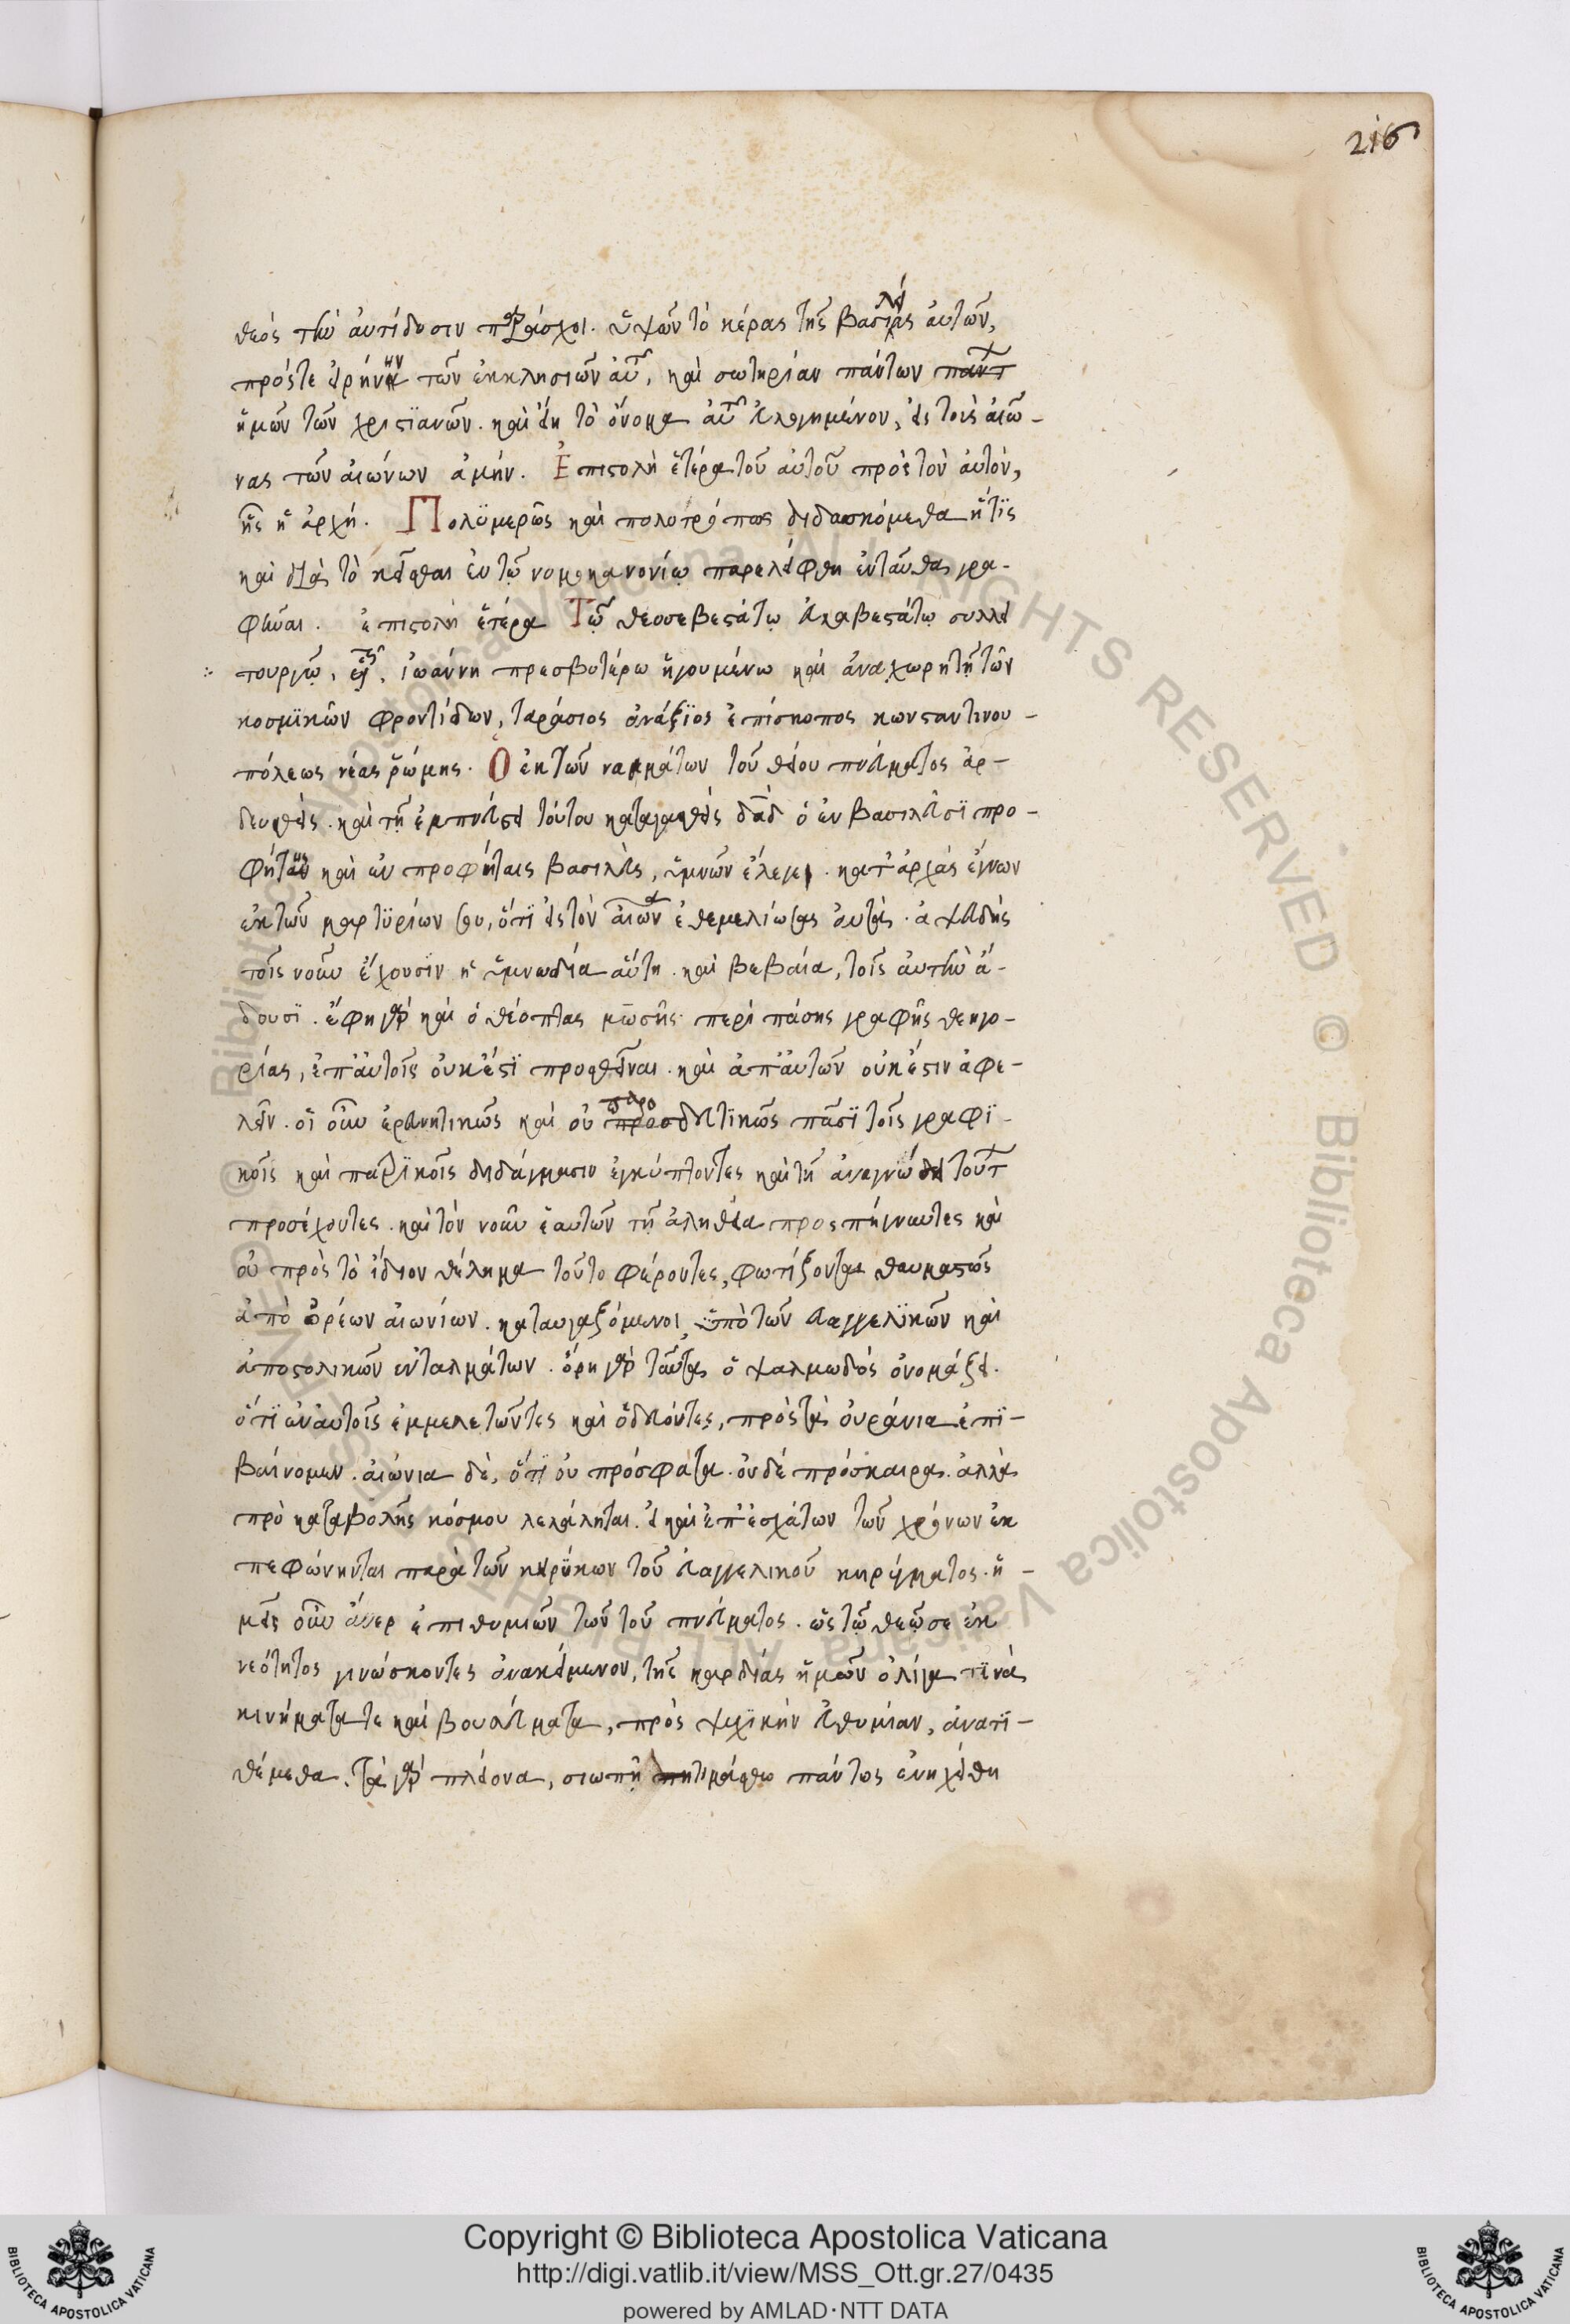 216
θεὸς τὴν ἀντίδοσιν παράσχοι. ὑψῶν τὸ κέρας τῆς βασιλείας αὐτῶν,
πρός τε εἰρήνην τῶν ἐκκλησιῶν αὐτ, καὶ σωτηρίαν πάντων παντ
ἡμῶν τῶν χριστϊανῶν. καὶ ἔστι τὸ ὄνομα αὐτ εὐλογημένον, εἰς τοὺς αἰῶ-
νας τῶν αἰώνων ἀμήν. Ἐπιστολὴ ἑτέρα τοῦ αὐτοῦ πρὸς τὸν αὐτὸν,
ἧς ἡ ἀρχή. Πολυμερῶς καὶ πολυτρόπως διδασκόμεθα ἥτϊς
καὶ διὰ τὸ κεῖσθαι ἐν τῷ νομοκανονίῳ παρελείφθη ἐνταῦθα γρα-
φῆναι. ἐπιστολὴ ἑτέρα Τῷ θεοσεβεστάτῳ εὐλαβεστάτῳ συλλει
τουργῷ, ἡμετ. ἰωάννῃ πρεσβυτέρω ἡγουμένω καὶ ἀναχωρητῇ τῶν
κοσμϊκῶν φροντίδων, ταράσιος ἀνάξϊος ἐπίσκοπος κωνσταντινου-
πόλεως νέας ῥώμης. Ὁ ἐκ τῶν ναμμάτων τοῦ θείου πνεύματος ἀρ-
δευθεὶς. καὶ τῇ ἐμπνεύσει τούτου καταυγασθεὶς δαδ ὁ ἐν βασιλεῦσϊ προ-
φήτης καὶ ἐν προφήταις βασιλεὺς, ὑμνῶν ἔλεγε. κατ' ἀρχὰς ἔγνων
ἐκ τῶν μαρτϋρίων σου, ὅτϊ εἰς τὸν αἰῶνα ἐθεμελίωσας αὐτὰς. ἀψευδὴς
τοῖς νοῦν ἔχουσϊν ἡ ὑμνωδία αὕτη. καὶ βεβαία, τοῖς αὐτὴν ἄ-
δουσϊ. ἔφη γὰρ καὶ ὁ θεόπτας μωσῆς περὶ πάσης γραφῆς θεηγο-
ρίας, ἐπ' αὐτοῖς οὐκ ἔστϊ προσθεῖναι. καὶ ἀπ' αὐτῶν οὐκ ἔστιν ἀφε-
λεῖν. οἱ οὖν ἐρευνητικῶς καὶ οὐ προσ παροδευτϊκῶς πᾶσϊ τοῖς γραφϊ-
κοῖς καὶ πατρϊκοῖς διδάγμασιν ἐγκύπτοντες καὶ τῇ ἀναγνώσει τούτ
προσέχοντες. καὶ τὸν νοῦν ἑαυτῶν τῇ ἀληθεία προσπήγνυντες καὶ
οὐ πρὸς τὸ ἴδιον θέλημα τοῦτο φέροντες, φωτίζονται θαυμαστῶς
ἀπὸ ὀρέων αἰωνίων. καταυγαζόμενοι ὑπὸ τῶν εὐαγγελϊκῶν καὶ
ἀποστολικῶν ἐνταλμάτων. ὄρη γὰρ ταῦτα ὁ ψαλμωδὸς ὀνομάζει.
ὅτϊ ἐν αὐτοῖς ἐμμελετῶντες καὶ ὁδεύοντες, πρὸς τὰ οὐράνια ἐπϊ-
βαίνομεν. αἰώνια δὲ, ὅτϊ οὐ πρόσφατα. οὐδὲ πρόσκαιρα. ἀλλὰ
πρὸ καταβολῆς κόσμου λελάληται. εἰ καὶ ἐπ' ἐσχάτων τῶν χρόνων ἐκ
πεφώνηνται παρὰ τῶν κηρύκων τοῦ εὐαγγελικοῦ κηρύγματος. ἡ-
μεῖς οὖν ἄνερ ἐπιθυμιῶν τῶν τοῦ πνεύματος. ὡς τῷ θεῷ σε ἐκ
νεότητος γινώσκοντες ἀνακείμενον, τῆς καρδίας ἡμῶν ὀλίγα τϊνὰ
κινήματα τε καὶ βουλεύματα, πρὸς ψυχϊκὴν εὐθυμίαν, ἀνατϊ-
θέμεθα. τὰ γὰρ πλείονα, σιωπῇ τιμάσθω πάντως ἐνηχείσθη